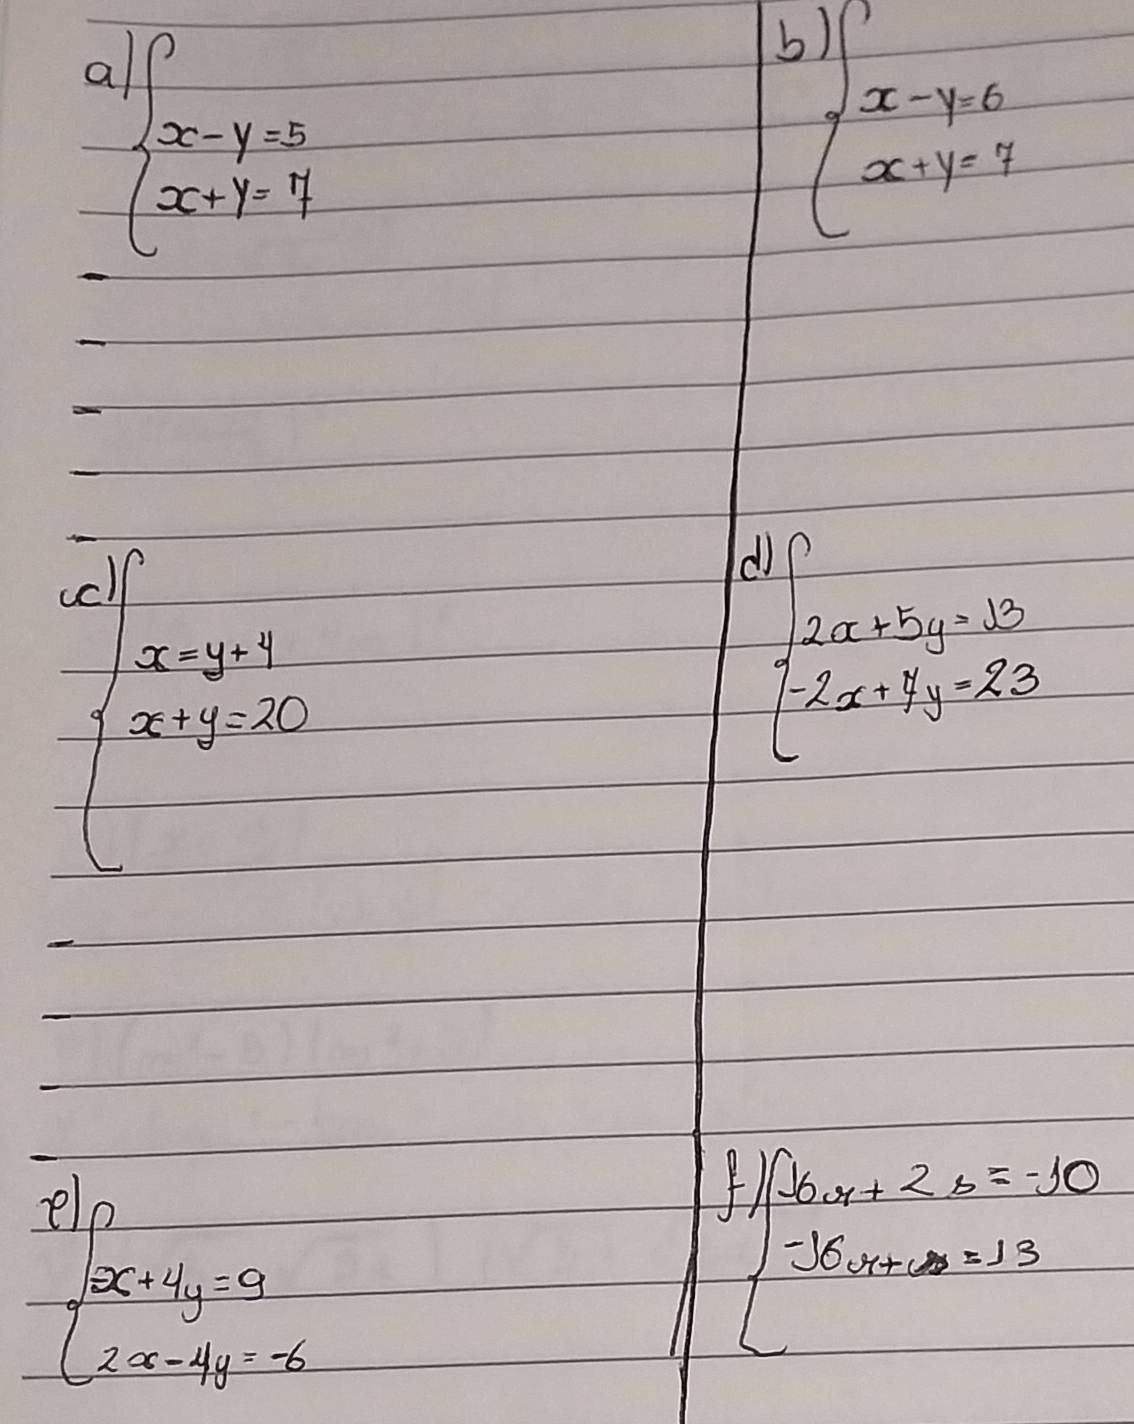 a) {
x - y = 5
x + y = 7
b) {
x - y = 6
x + y = 7
c) {
x = y + 4
x + y = 20
d) {
2x + 5y = 13
-2x + 7y = 23
e) {
x + 4y = 9
2x - 4y = -6
f) { 16r + 2s = -10
-16r + s = 13